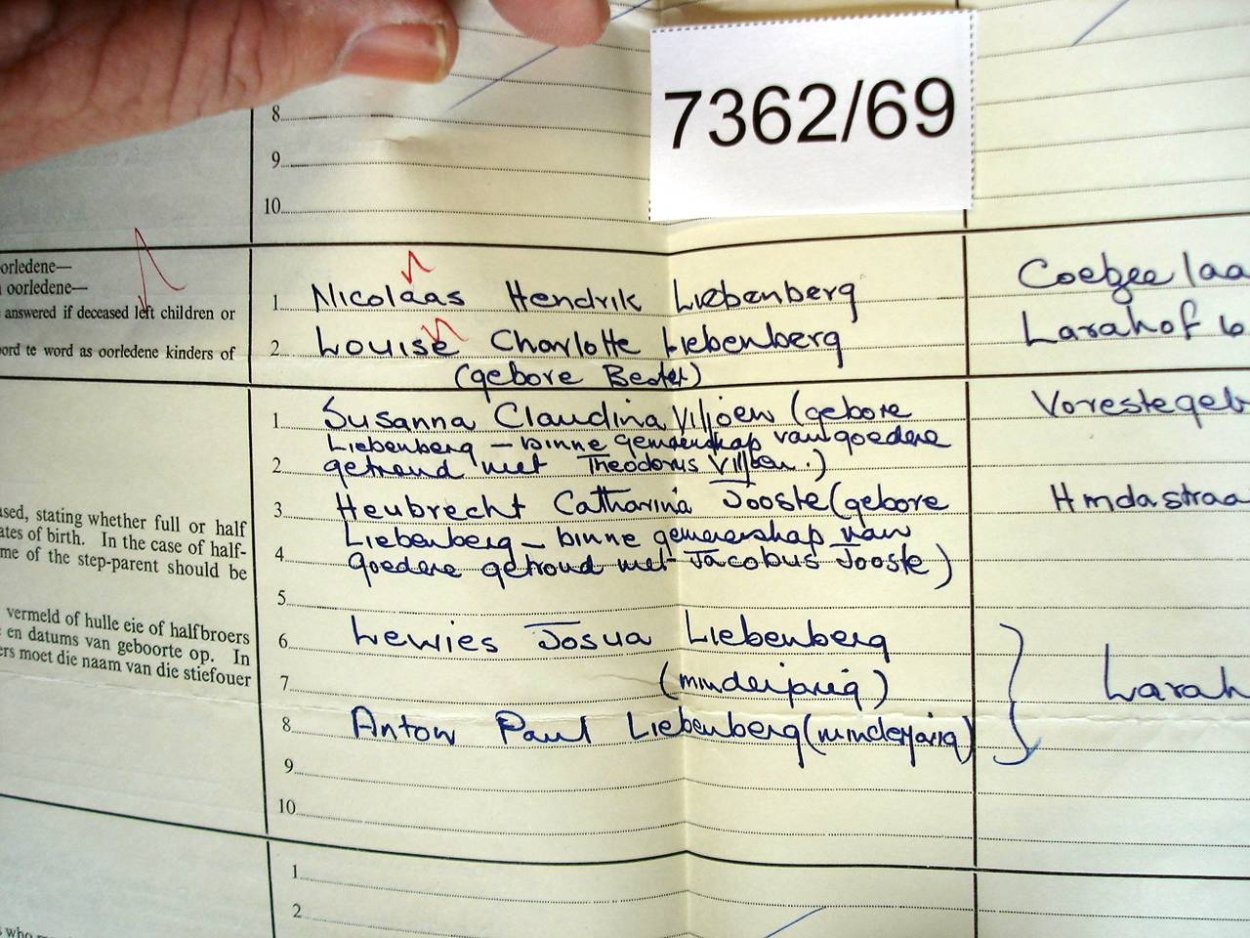 7362/69
8.
9.
10.
oorledene—
oorledene—
answered if deceased left children or
word te word as oorledene kinders of
1. Nicolaas Hendrik Liebenberg Coetzee laa
2. Louise Charlotte Liebenberg Larahof
(gebore Bester)
1. Susanna Claudina Viljoen (gebore
Liebenberg — binne gemeenskap van goedere
2. getroud met Theodorus Viljoen.)
3. Heubrecht Catharina Jooste (gebore
Liebenberg — binne gemeenskap van
4. goedere getroud met Jacobus Jooste)
5.
6. Lewies Josua Liebenberg
7. (minderjarig) Larah
8. Anton Paul Liebenberg (minderjarig)
9.
10.
ased, stating whether full or half
ates of birth. In the case of half-
me of the step-parent should be
vermeld of hulle eie of halfbroers
en datums van geboorte op. In
ers moet die naam van die stiefouer
1.
2.
who